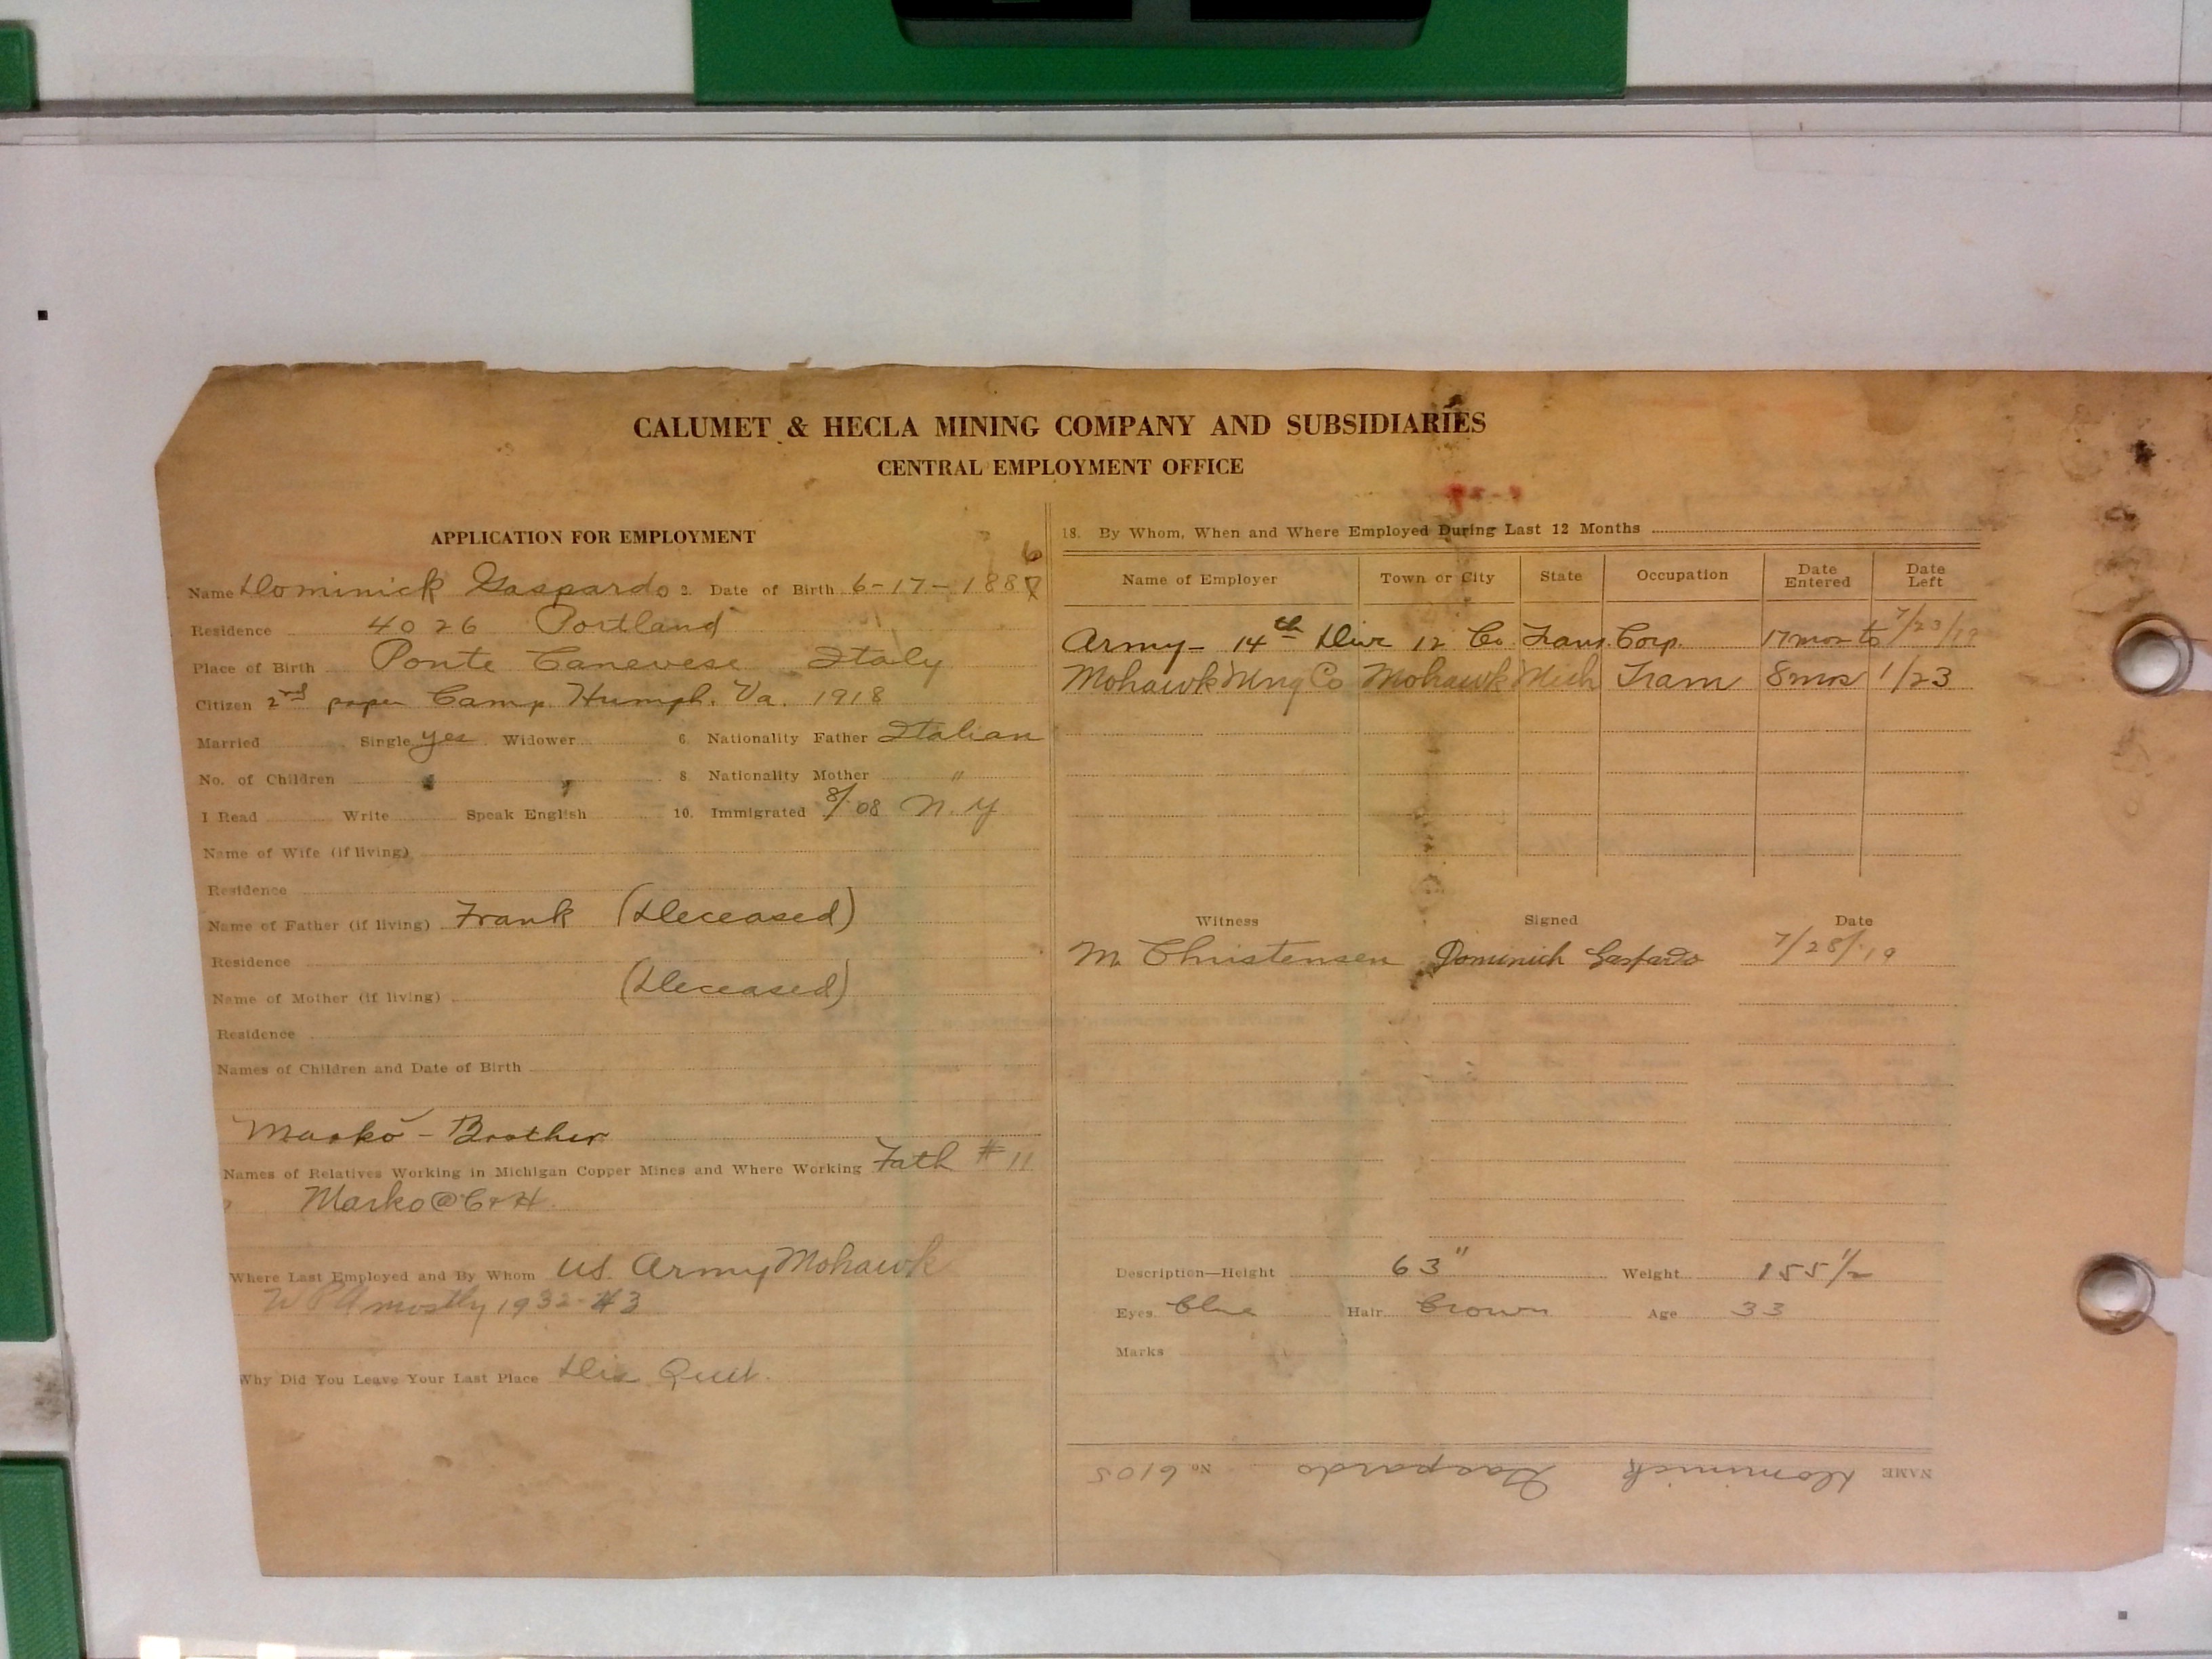 CALUMET & HECLA MINING COMPANY AND SUBSIDIARIES
CENTRAL EMPLOYMENT OFFICE
APPLICATION FOR EMPLOYMENT
6
Name Dominick Gaspardo 2. Date of Birth 6-17-1887
Residence 4026 Portland
Place of Birth Ponte Canevese Italy
Citizen 2nd paper Camp. Humph. Va. 1918
Married Single yes Widower 6. Nationality Father Italian
No. of Children 8. Nationality Mother "
I Read Write Speak English 10. Immigrated 8/08 N.Y
Name of Wife (if living)
Residence
Name of Father (if living) Frank (Deceased)
Residence
Name of Mother (if living) (Deceased)
Residence
Names of Children and Date of Birth
Marko - Brother
Names of Relatives Working in Michigan Copper Mines and Where Working Fath # 11
Marko @ C+H.
Where Last Employed and By Whom US. Army Mohawk
WPA mostly 1932-43
Why Did You Leave Your Last Place Dis Quit.
18. By Whom, When and Where Employed During Last 12 Months
Name of Employer Town or City State Occupation Date Entered Date Left
Army - 14th Div 12 Co Trans. Corp. 17 mos to 7/23/19
Mohawk Mng Co Mohawk Mich Tram 8 mos 1/23
Witness Signed Date
M. Christensen Dominich Gaspardo 7/28/19
Description—Height 63" Weight 155 1/2
Eyes Blue Hair Brown Age 33
Marks
NAME Dominick Gaspardo No 6105